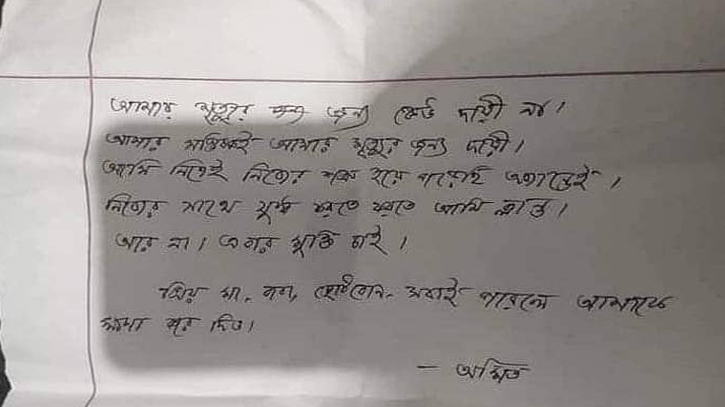 আমার মৃত্যুর জন্য কেউ দায়ী না।
আমার মস্তিষ্কই আমার মৃত্যুর জন্য দায়ী।
আমি নিজেই নিজের শত্রু হয়ে পড়েছি অজান্তেই।
নিজের সাথে যুদ্ধ করতে করতে আমি ক্লান্ত।
আর না। এবার মুক্তি চাই।
প্রিয় মা, বাবা, ছোটবোন, সবাই পারলে আমাকে
ক্ষমা করে দিও।
- অমিত